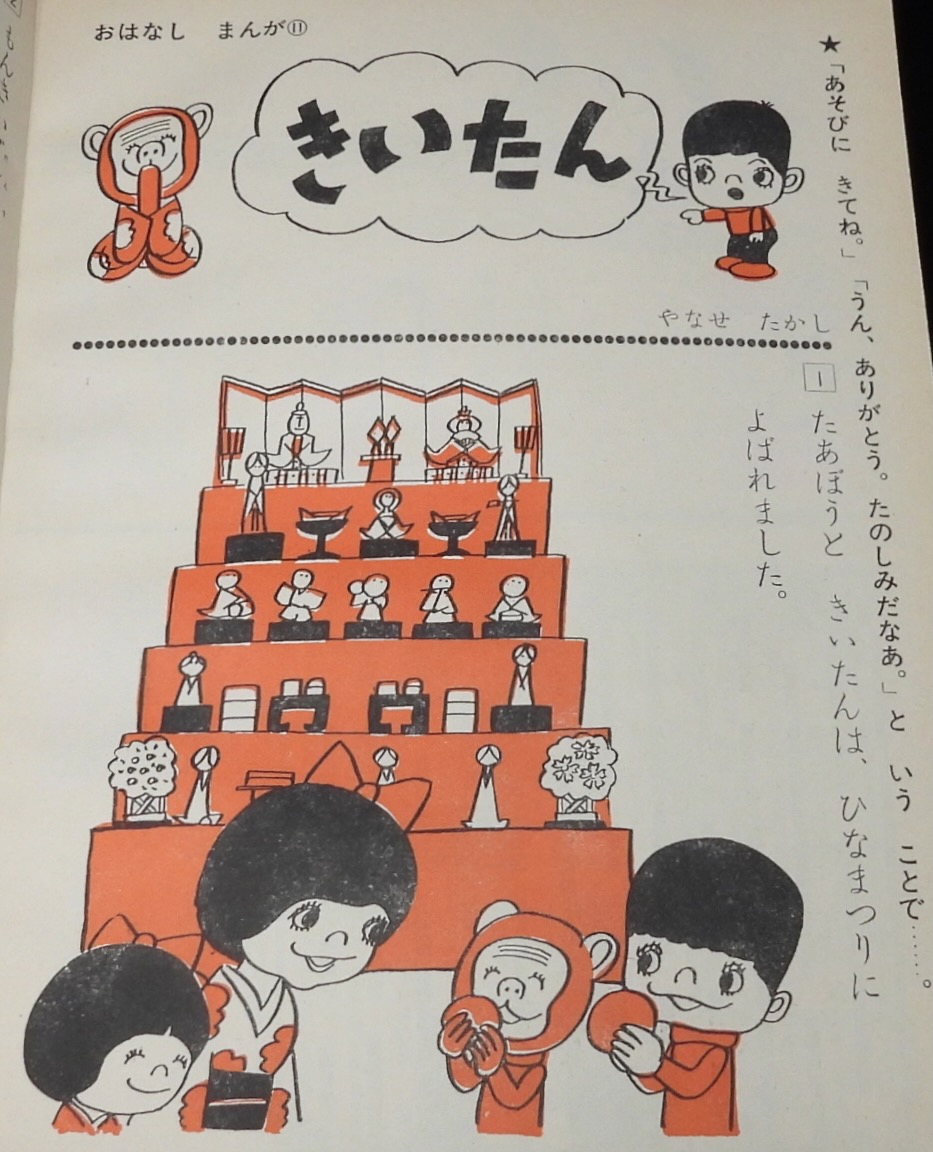 おはなし まんが⑪
きいたん
やなせ たかし
★「あそびに きてね。」「うん、ありがとう。たのしみだなあ。」と いう ことで……。
1 たあぼうと きいたんは、ひなまつりに
よばれました。